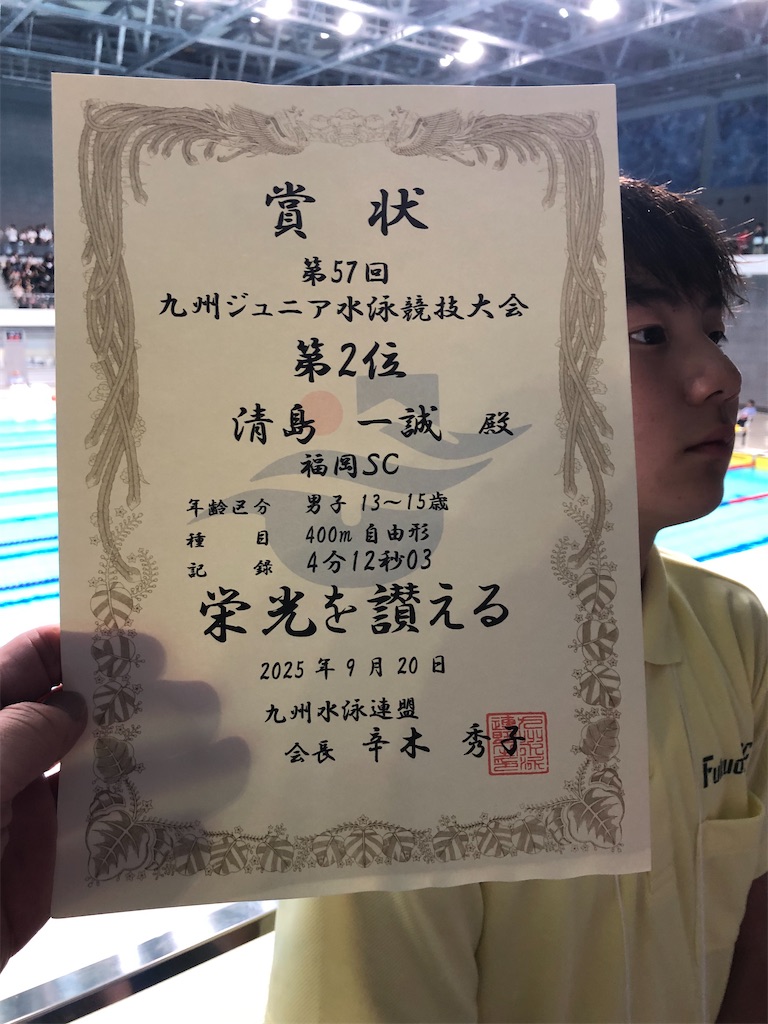 賞状
第57回
九州ジュニア水泳競技大会
第2位
清島 一誠 殿
福岡SC
年齢区分 男子 13～15歳
種目 400m 自由形
記録 4分12秒03
栄光を讃える
2025年9月20日
九州水泳連盟
会長 辛木 秀子